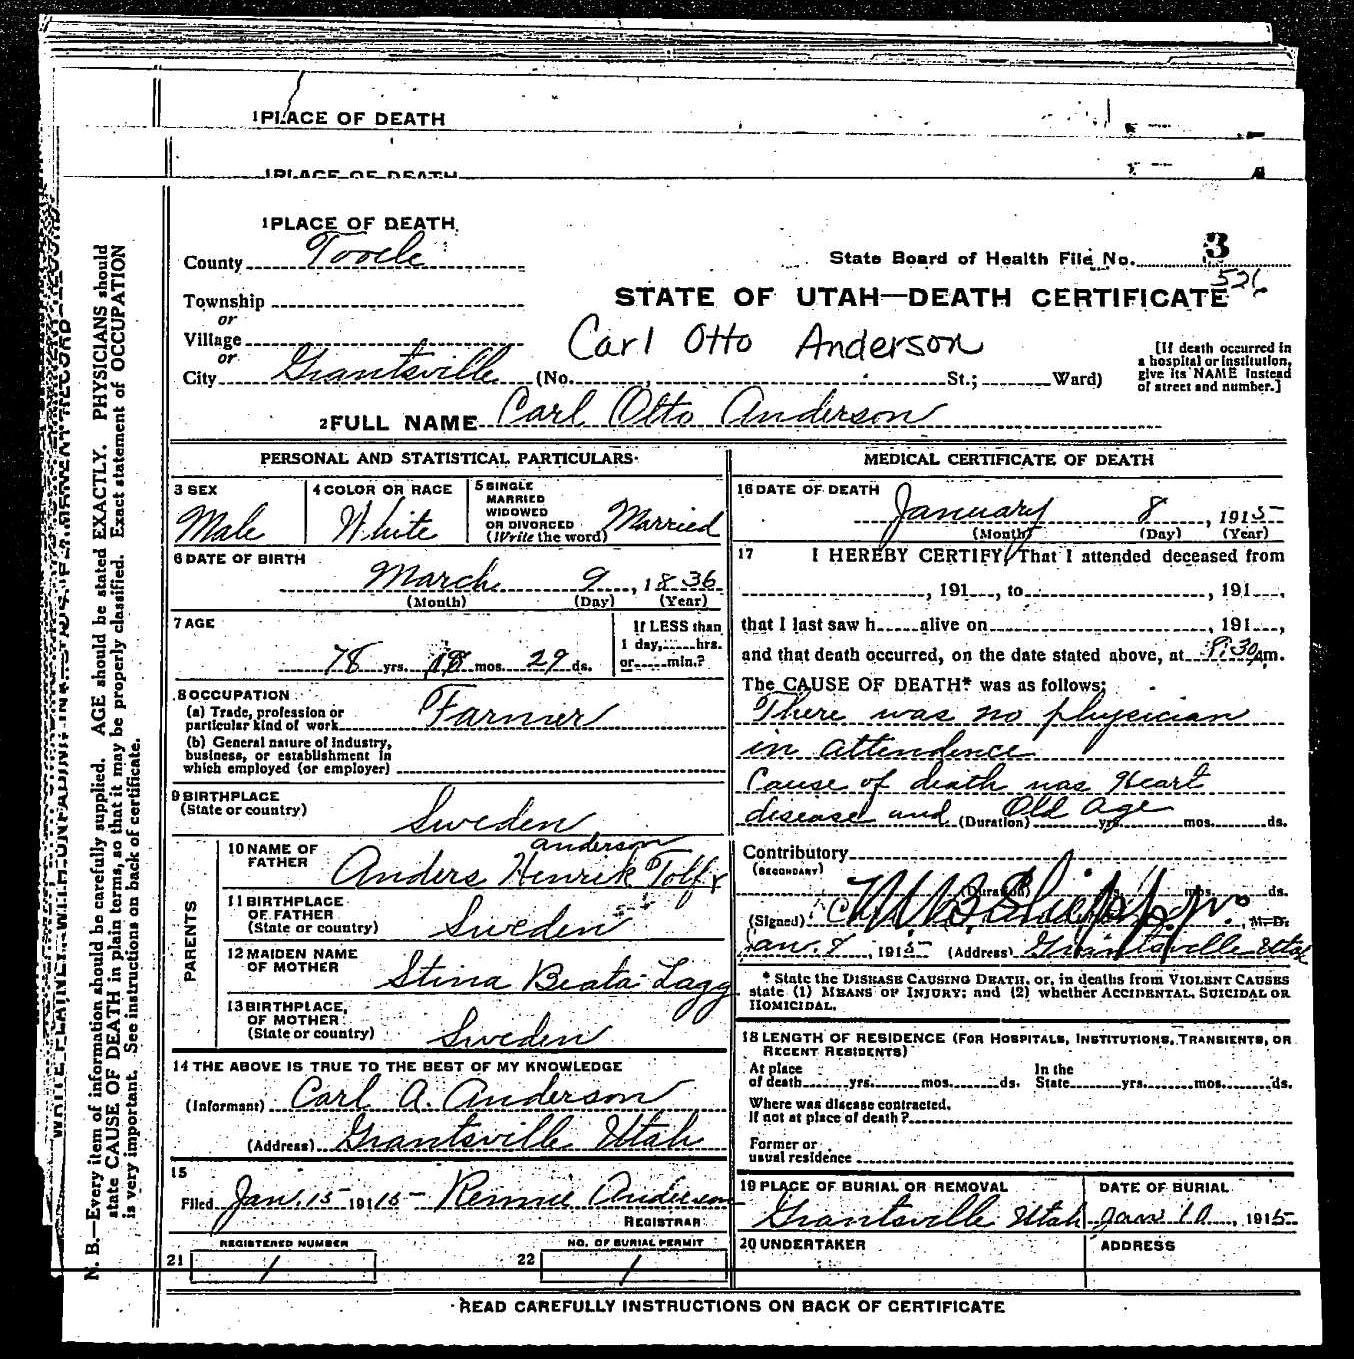 1 PLACE OF DEATH
1 PLACE OF DEATH
1 PLACE OF DEATH
County Tooele
State Board of Health File No. 3
526
Township
or
Village
or
City Grantsville (No. St.; Ward)
STATE OF UTAH—DEATH CERTIFICATE
Carl Otto Anderson
[If death occurred in
a hospital or institution,
give its NAME instead
of street and number.]
2 FULL NAME Carl Otto Anderson
PERSONAL AND STATISTICAL PARTICULARS
3 SEX
Male
4 COLOR OR RACE
White
5 SINGLE
MARRIED
WIDOWED
OR DIVORCED
(Write the word)
Married
6 DATE OF BIRTH
March 9, 1836
(Month) (Day) (Year)
7 AGE
78 yrs. mos. 29 ds.
If LESS than
1 day, hrs.
or min.?
8 OCCUPATION
(a) Trade, profession or
particular kind of work Farmer
(b) General nature of industry,
business, or establishment in
which employed (or employer)
9 BIRTHPLACE
(State or country)
Sweden
PARENTS
10 NAME OF
FATHER
anderson
Anders Henrik Tolf
11 BIRTHPLACE
OF FATHER
(State or country)
Sweden
12 MAIDEN NAME
OF MOTHER
Stina Beata Lagg
13 BIRTHPLACE,
OF MOTHER
(State or country)
Sweden
14 THE ABOVE IS TRUE TO THE BEST OF MY KNOWLEDGE
(Informant) Carl A. Anderson
(Address) Grantsville Utah
15
Filed Jan. 15 1915 Rennie Anderson
REGISTRAR
21 REGISTERED NUMBER
1
22 NO. OF BURIAL PERMIT
1
MEDICAL CERTIFICATE OF DEATH
16 DATE OF DEATH
January 8, 1915
(Month) (Day) (Year)
17 I HEREBY CERTIFY, That I attended deceased from
, 191 , to , 191 ,
that I last saw h alive on , 191 ,
and that death occurred, on the date stated above, at 9:30 am.
The CAUSE OF DEATH* was as follows:
There was no physician
in attendence
Cause of death was Heart
disease and Old age
(Duration) yrs. mos. ds.
Contributory
(SECONDARY)
(Duration) mos. ds.
(Signed) M.D.
Jan. 9, 1915 (Address) Grantsville Utah
* State the DISEASE CAUSING DEATH, or, in deaths from VIOLENT CAUSES
state (1) MEANS OF INJURY; and (2) whether ACCIDENTAL, SUICIDAL OR
HOMICIDAL.
18 LENGTH OF RESIDENCE (FOR HOSPITALS, INSTITUTIONS, TRANSIENTS, OR
RECENT RESIDENTS)
At place
of death yrs. mos. ds.
In the
State yrs. mos. ds.
Where was disease contracted,
If not at place of death?
Former or
usual residence
19 PLACE OF BURIAL OR REMOVAL
Grantsville Utah
DATE OF BURIAL
Jan 10, 1915
20 UNDERTAKER
ADDRESS
READ CAREFULLY INSTRUCTIONS ON BACK OF CERTIFICATE
N. B.—Every item of information should be carefully supplied. AGE should be stated EXACTLY. PHYSICIANS should
state CAUSE OF DEATH in plain terms, so that it may be properly classified. Exact statement of OCCUPATION
is very important. See instructions on back of certificate.